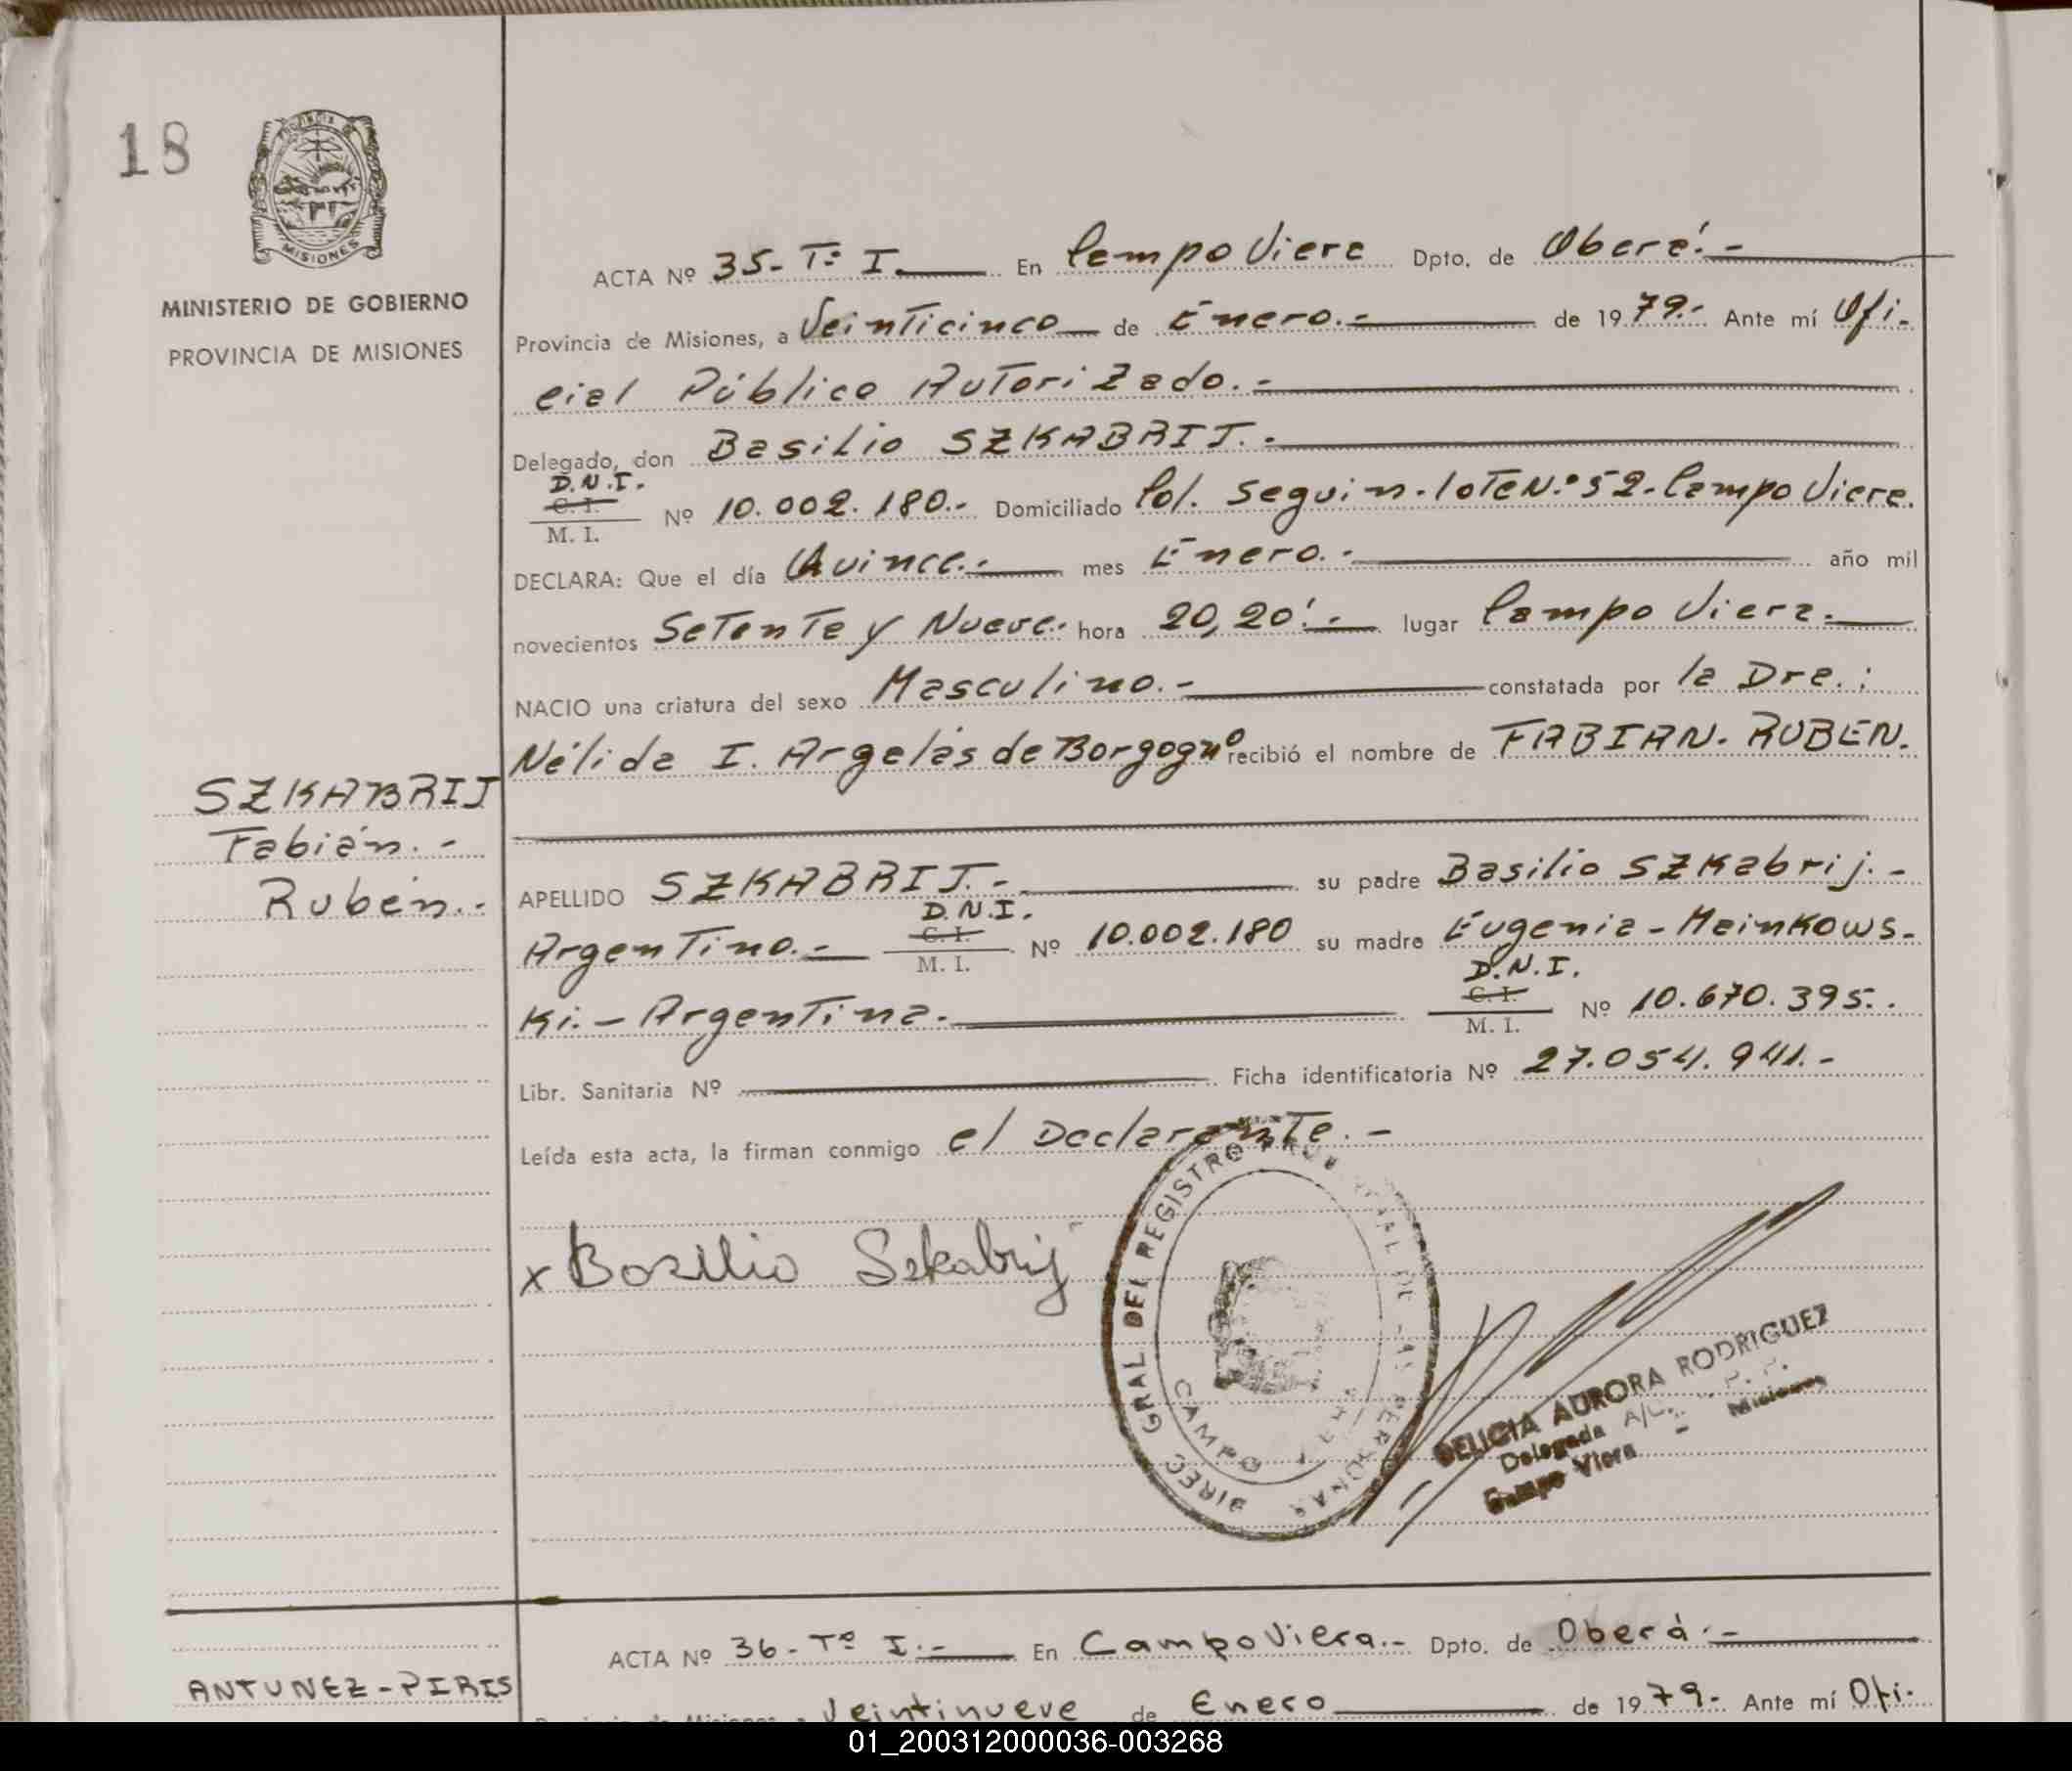 18
PROVINCIA DE
MISIONES
MINISTERIO DE GOBIERNO
PROVINCIA DE MISIONES
ACTA Nº 35- Tº I. En Campo Viera Dpto. de Oberá.-
Provincia de Misiones, a Veinticinco de Enero.- de 1979.- Ante mí Ofi-
cial Público Autorizado.-
Delegado, don Basilio SZKABRIJ.-
D.N.I.
C. I.
M. I. Nº 10.002.180.- Domiciliado Col. Seguin-lote N.º 52-Campo Viera.
DECLARA: Que el día Quince.- mes Enero.- año mil
novecientos Setenta y Nueve. hora 20,20'.- lugar Campo Viera.
NACIO una criatura del sexo Masculino.- constatada por la Dra.:
Nélida I. Argelás de Borgogno recibió el nombre de FABIAN. RUBEN.
SZKABRIJ
Fabián.-
Rubén.-
APELLIDO SZKABRIJ.- su padre Basilio SZKabrij.-
Argentino.- D.N.I. C. I. M. I. Nº 10.002.180 su madre Eugenia-Meinkows-
ki.-Argentina. D.N.I. C. I. M. I. Nº 10.670.395.
Libr. Sanitaria Nº Ficha identificatoria Nº 27.054.941.-
Leída esta acta, la firman conmigo el Declarante.-
x Basilio Szkabrij
DIREC GRAL DEL REGISTRO DE PERSONAS
CAMPO
DELICIA AURORA RODRIGUEZ
Delegada
Campo Viera - Misiones
ACTA Nº 36-Tº I.- En Campo Viera.- Dpto. de Oberá.-
ANTUNEZ-PIRIS
Provincia de Misiones, a Veintinueve de Enero de 1979.- Ante mí Ofi-
01_200312000036-003268